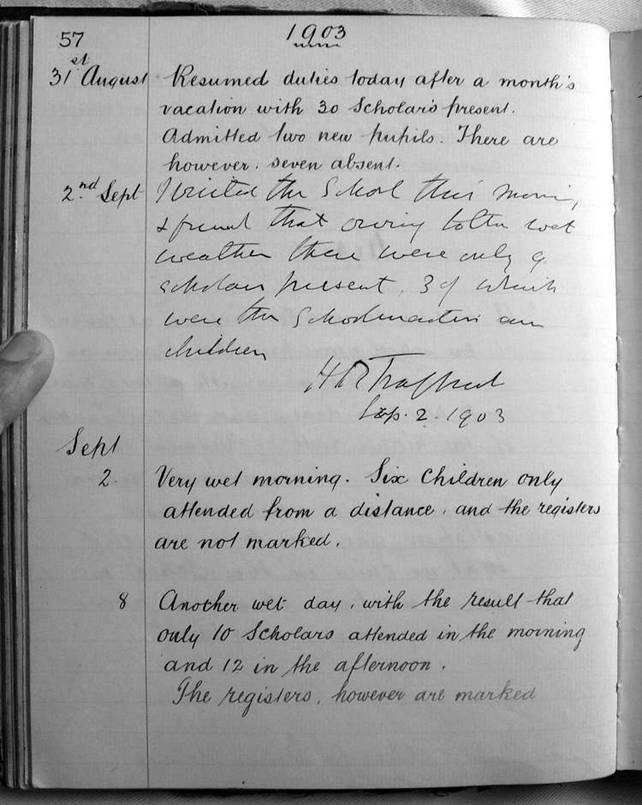 57
1903
31st August Resumed duties today after a month's
vacation with 30 Scholars present.
Admitted two new pupils. There are
however, seven absent.
2nd Sept I visited the School this morning,
& found that owing to the wet
weather there were only 9
scholars present, 3 of which
were the Schoolmasters own
children
H R Trafford
Sep. 2. 1903
Sept
2 Very wet morning. Six Children only
attended from a distance, and the registers
are not marked.
8 Another wet day, with the result that
only 10 Scholars attended in the morning
and 12 in the afternoon.
The registers, however are marked